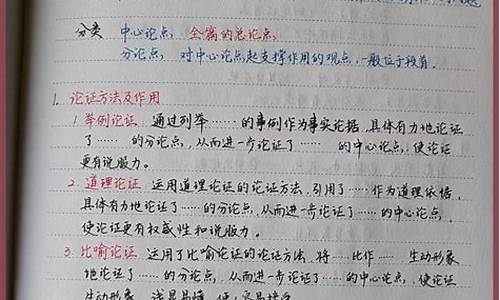 分类 中心论点：全篇的总论点
分论点：对中心论点起支撑作用的观点，一般位于段首
1. 论证方法及作用
1.举例论证 通过列举……的事例作为事实论据，具体有力地论证
了……的分论点，从而进一步论证了……的中心论点，使论证
更有说服力。
2.道理论证 运用道理论证的论证方法，引用了……作为道理依据，
具体有力地论证了……的分论点，从而进一步论证了……的中心论点，
使论证更有权威性和说服力。
3.比喻论证 运用了比喻论证的论证方法，将……比作……生动形象
地论证了……的分论点，从而进一步论证了……的中心论点，使论证
生动形象